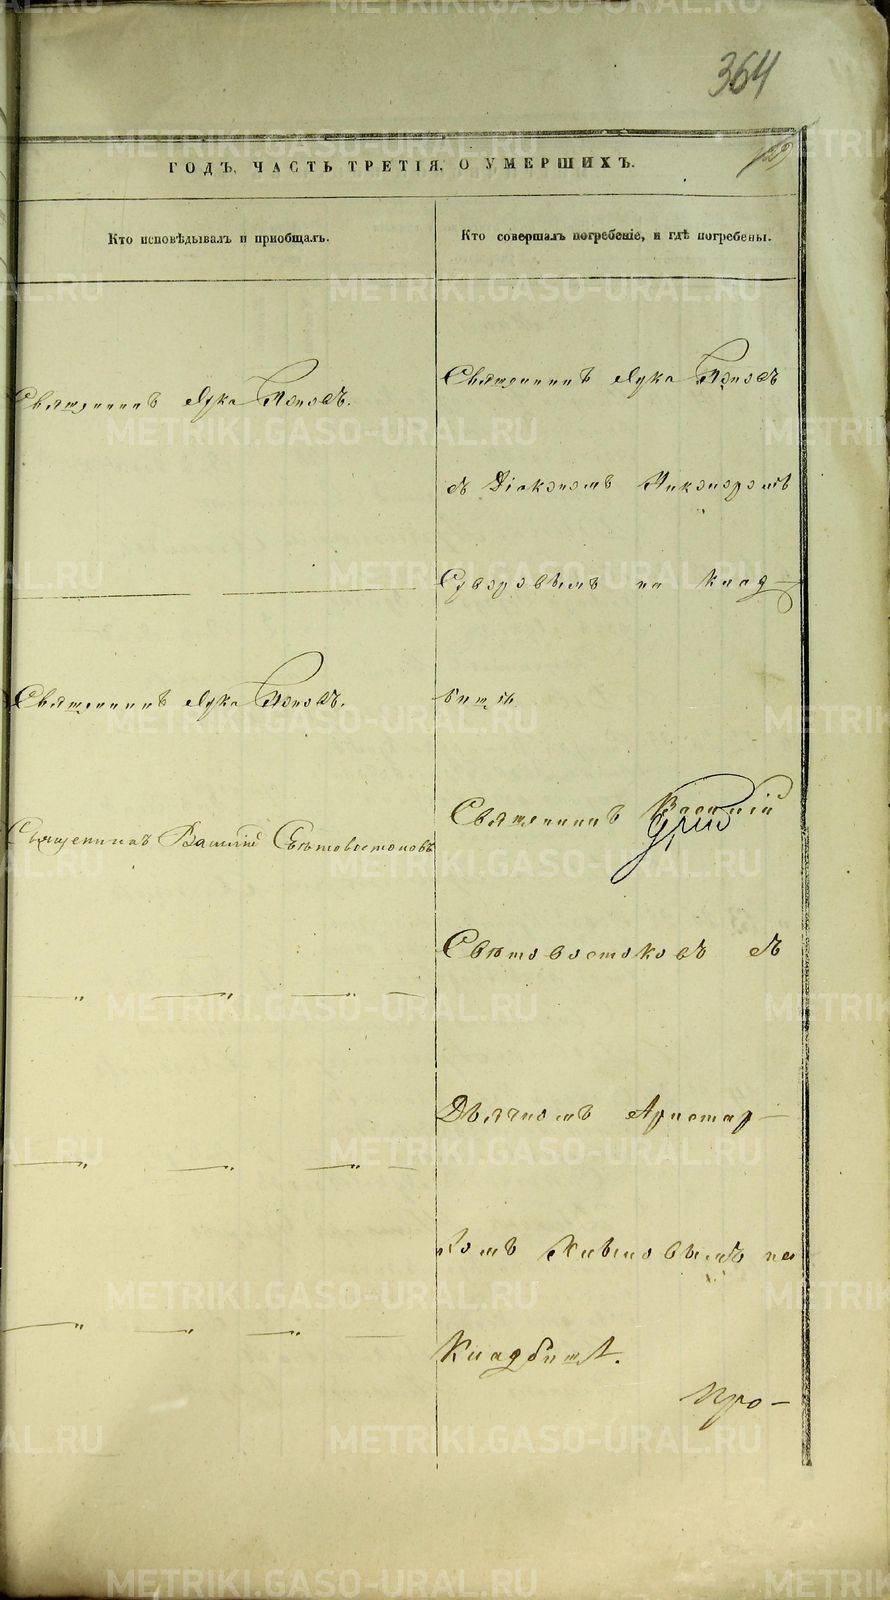 364
ГОДЪ, ЧАСТЬ ТРЕТІЯ, О УМЕРШИХЪ.
Кто исповѣдывалъ и приобщалъ.
Кто совершалъ погребеніе, и гдѣ погребены.
Священникъ Лука Поповъ.
Священникъ Лука Поповъ
съ Діакономъ Никаноромъ
на клад-
Священникъ Лука Поповъ.
бищѣ
Священникъ Василій
Священникъ Василій Свѣтовостоковъ
Свѣтовостоковъ съ
Дьячкомъ Аристар-
хомъ на
Кладбищѣ.
Про-
METRIKI.GASO-URAL.RU